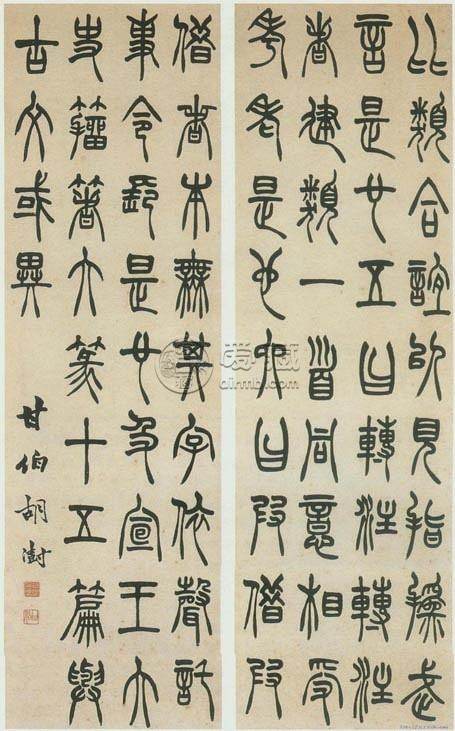 比類合誼以見指撝武
信是也五曰轉注轉注
者建類一首同意相受
考老是也六曰叚借叚
借者本無其字依聲託
事令長是也及宣王大
史籀著大篆十五篇與
古文或異
甘伯胡澍
爱藏
airmb.com